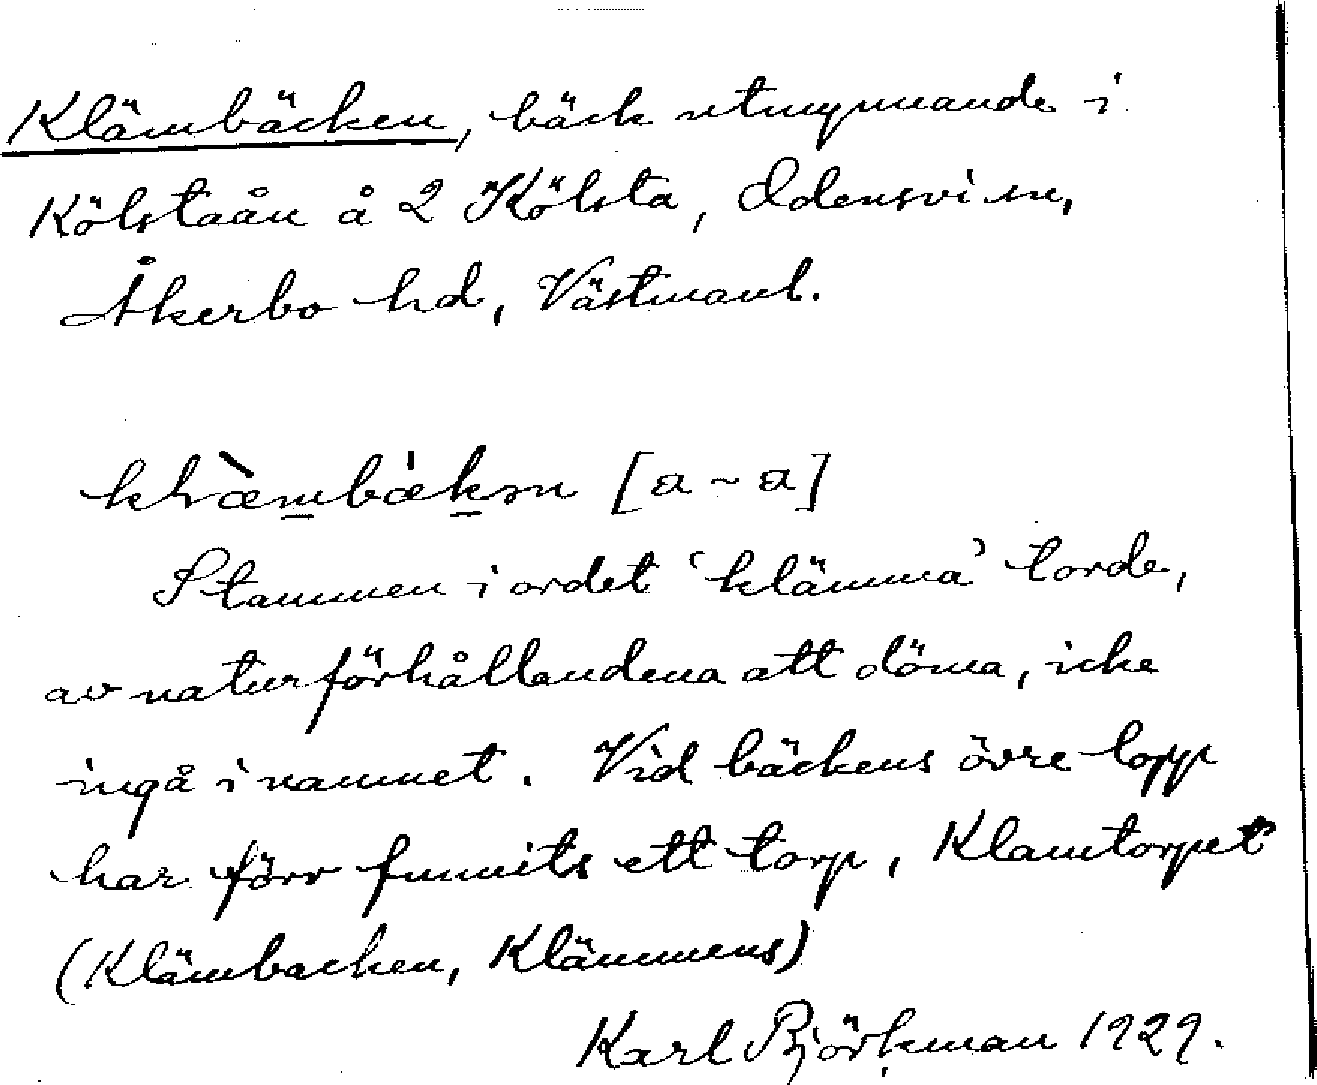 Klämbäcken, bäck utmynnande i
Kölstaån å 2 Kölsta, Odensvi sn,
Åkerbo hd, Västmanl.
klæ̀mbækən [a ~ a]
Stammen i ordet 'klämma' torde,
av naturförhållandena att döma, icke
ingå i namnet. Vid bäckens övre lopp
har förr funnits ett torp, Klamtorpet
(Klämbacken, Klämmens)
Karl Björkman 1929.